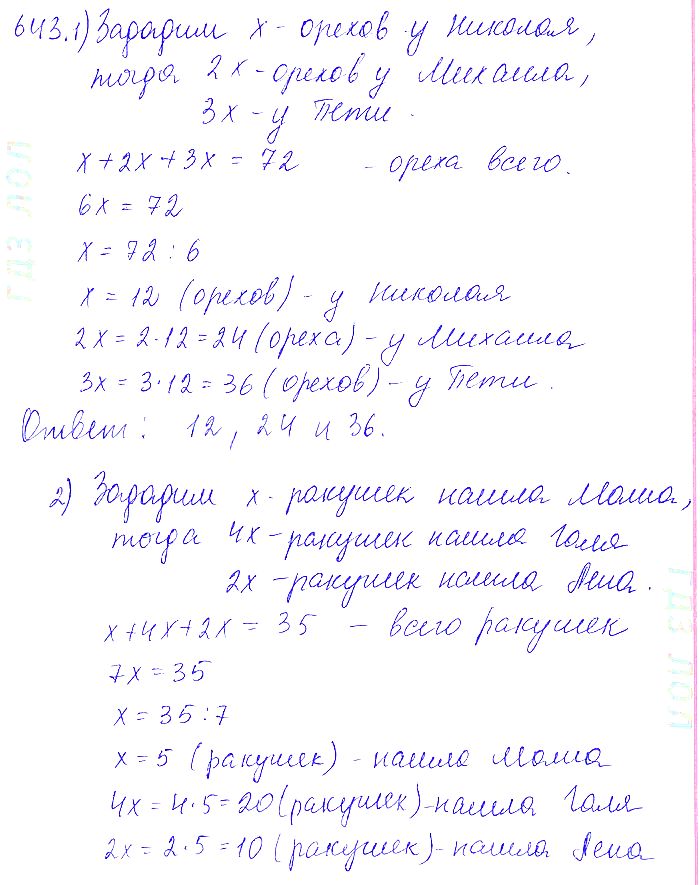 643.1) Зададим x - орехов у Николая,
тогда 2x - орехов у Михаила,
3x - у Пети.
x + 2x + 3x = 72 - ореха всего.
6x = 72
x = 72 : 6
x = 12 (орехов) - у Николая
2x = 2·12 = 24 (ореха) - у Михаила
3x = 3·12 = 36 (орехов) - у Пети.
Ответ: 12, 24 и 36.
2) Зададим x - ракушек нашла Маша,
тогда 4x - ракушек нашла Галя
2x - ракушек нашла Лена.
x + 4x + 2x = 35 - всего ракушек
7x = 35
x = 35 : 7
x = 5 (ракушек) - нашла Маша
4x = 4·5 = 20 (ракушек) - нашла Галя
2x = 2·5 = 10 (ракушек) - нашла Лена
ГДЗ ЛОЛ
ГДЗ ЛОЛ